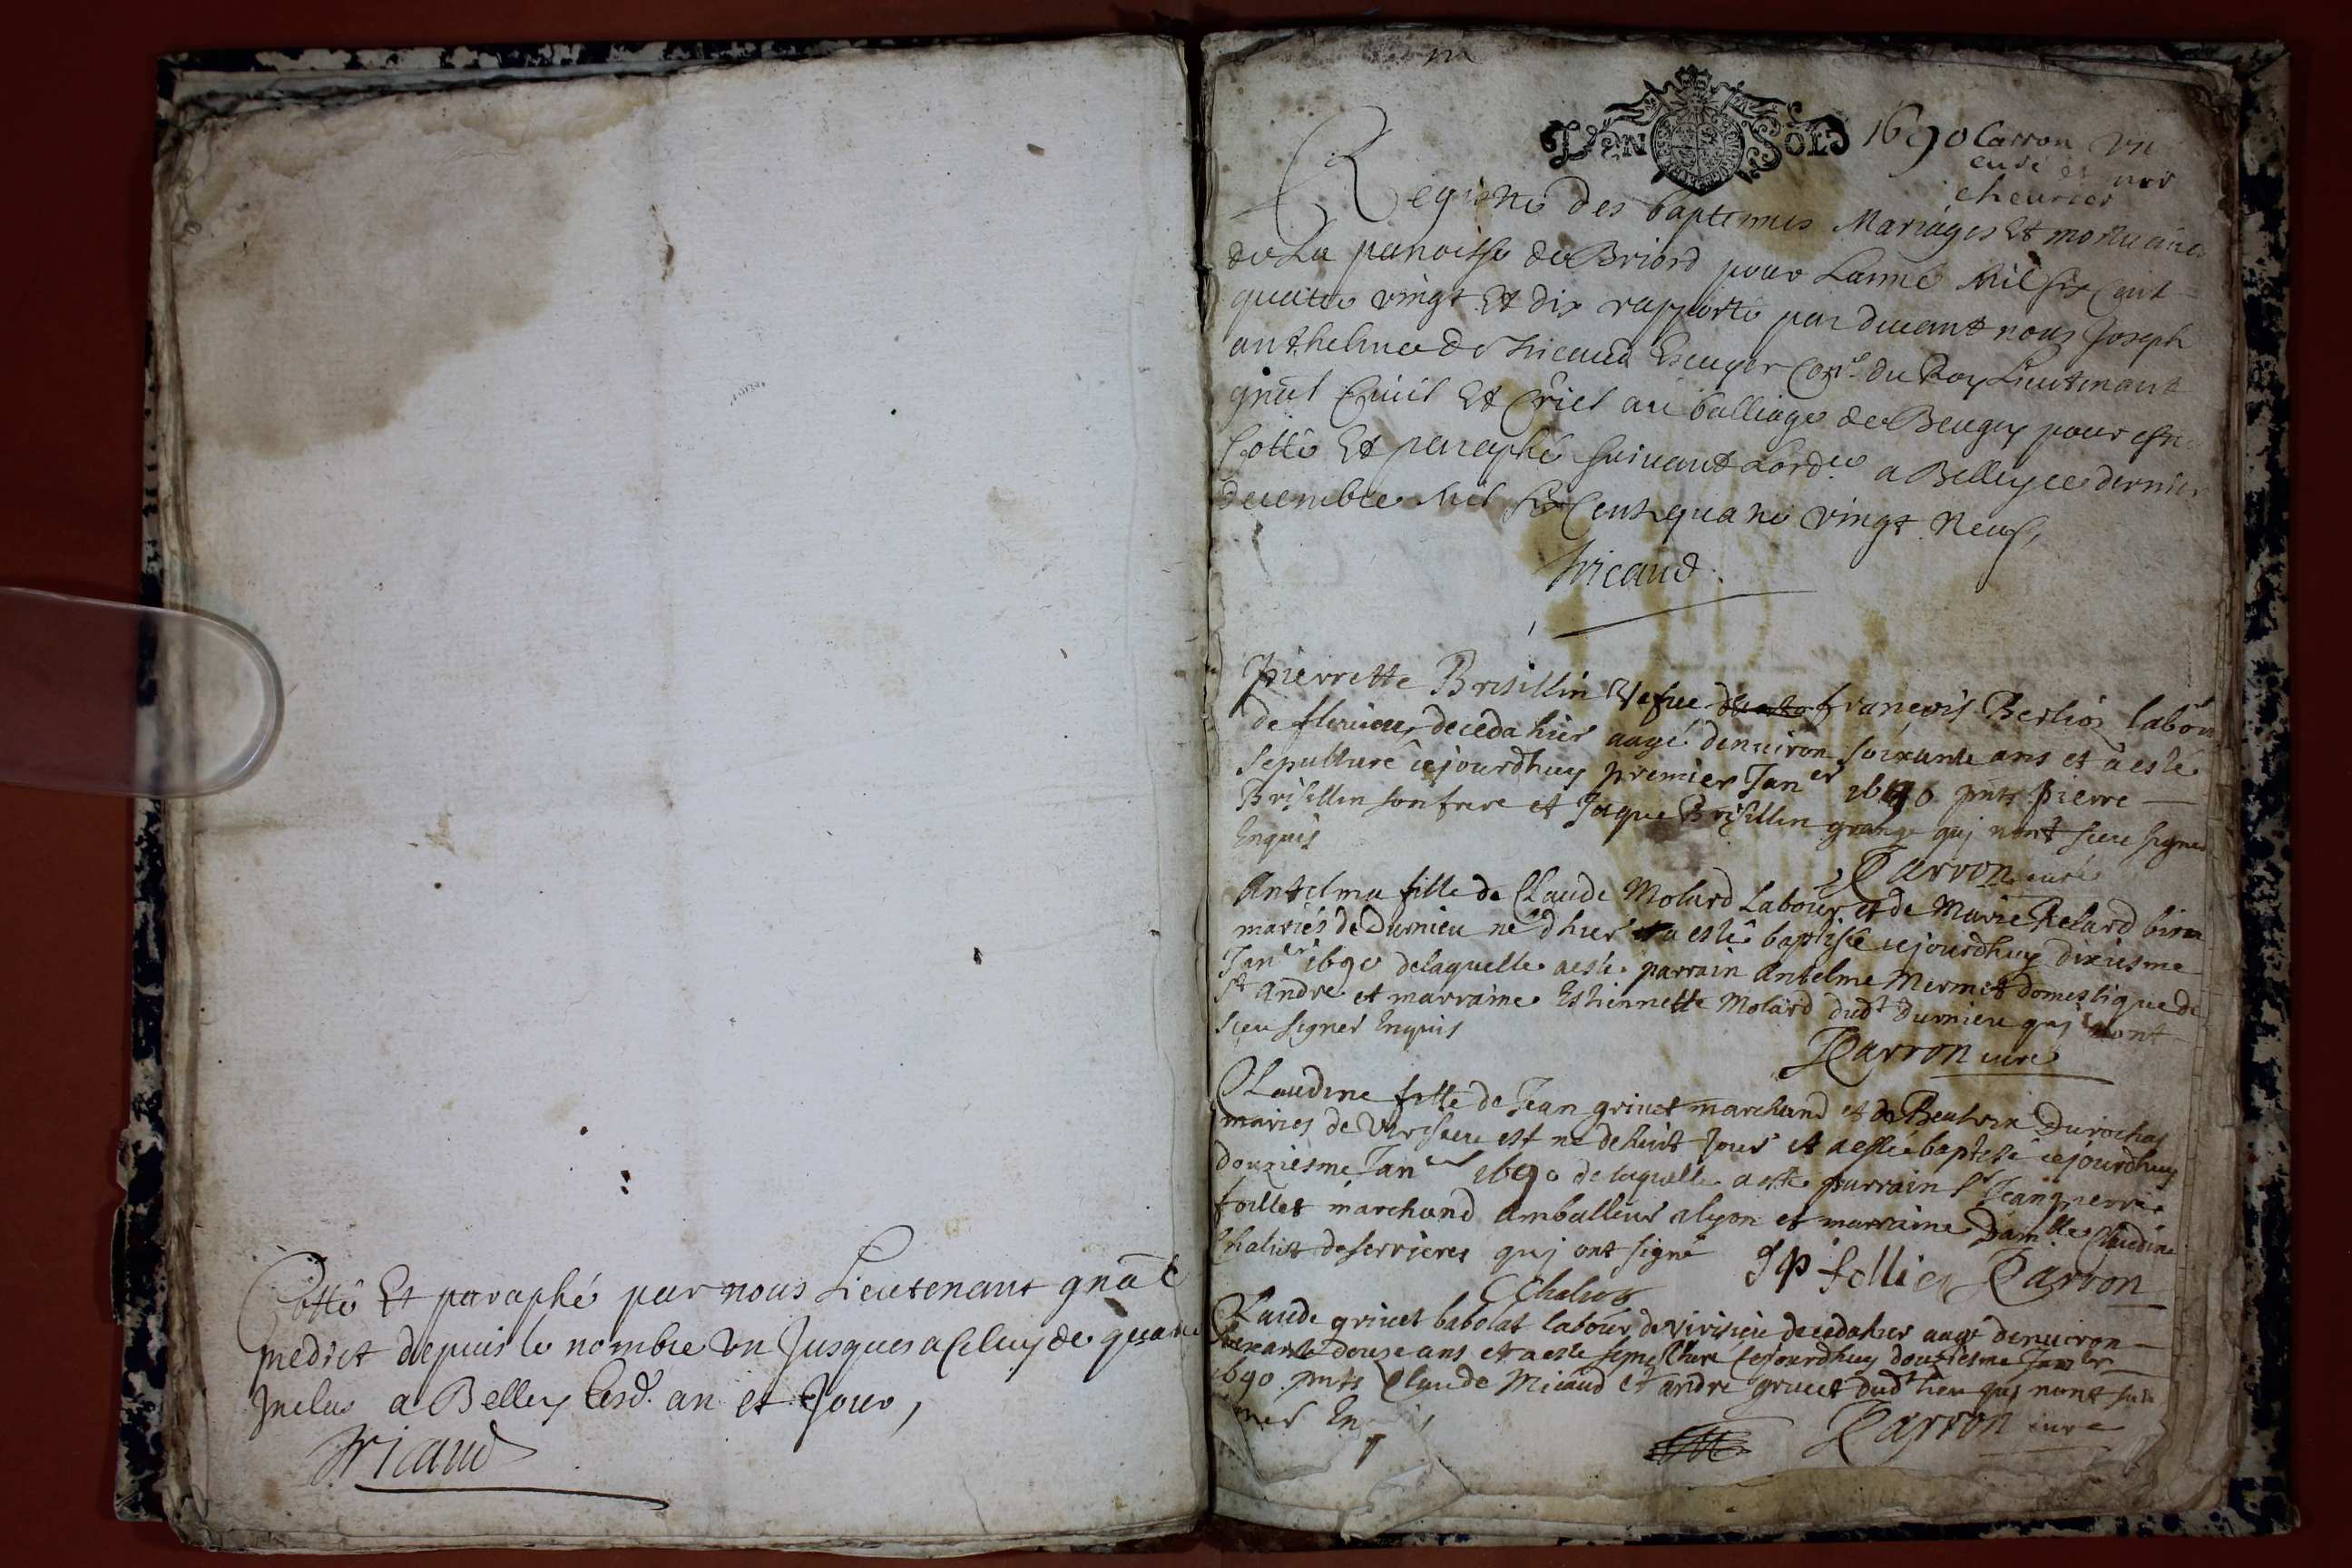 Cotté Et paraphé par nous Lieutenant gnãl
predict depuis le nombre un Jusques a Celuy de quatre
Inclus a Belley Lesd. an et Jour,
Tricaud
DEN SOLS 1690 Carron un
curé
Registre des baptemes Mariages Et mortuaires
de La paroisse de Briord pour Lanné Mil six Cent
quatre vingt Et dix rapporté par devant nous Joseph
anthelme de Tricaud Escuyer Conr. du Roy Lieutenant
gnal Civil Et Criel au balliage de Beugey pour estre
Cotté Et paraphé suivant Lordce a Belley ce dernier
decembre Mil Six Cent quatre vingt Neuf,
Tricaud.
Pierrette Brisillin Vefue francois Berlioz labour
de flerieu decedahier aagé denuiron soixante ans et à esté
sepulturé cejourdhuy premier Janer 1690 pnts pierre
Brisillin son frere et Jaque Brisillin grange quj nont sceu signer
Enquis
Carron curé
Antelma fille de Claude Molard Labour. et de Marie Relard bien
mariés de Durnieu né dhier a esté baptisé cejourdhuy dixiesme
Janer 1690 delaquelle aesté parrain Antelme Mermet domestique de
St André et marraine Estiennette Molard dudt Durnieu quj nont
sceu signer Enquis
Carron curé
Claudine fille de Jean griuet marchand et de Beatrix Durochat
mariés de est né de huit Jour et aesté baptisé cejourdhuy
douziesme Janer 1690 de laquelle a esté parrain Sr Jeanpierre
follet marchand amballeur alyon et marraine Damlle Claudine
Chaliot deserrieres quj ont signé Jp follie Carron
CChaliot
Claude griuet babolat labour. de decedahier aagé denuiron
soixante douze ans et aesté sepulturé cejourdhuy douziesme Janer
1690. pnts Claude Micaud et andré griuet dudt lieu quj nont sceu
Carron curé